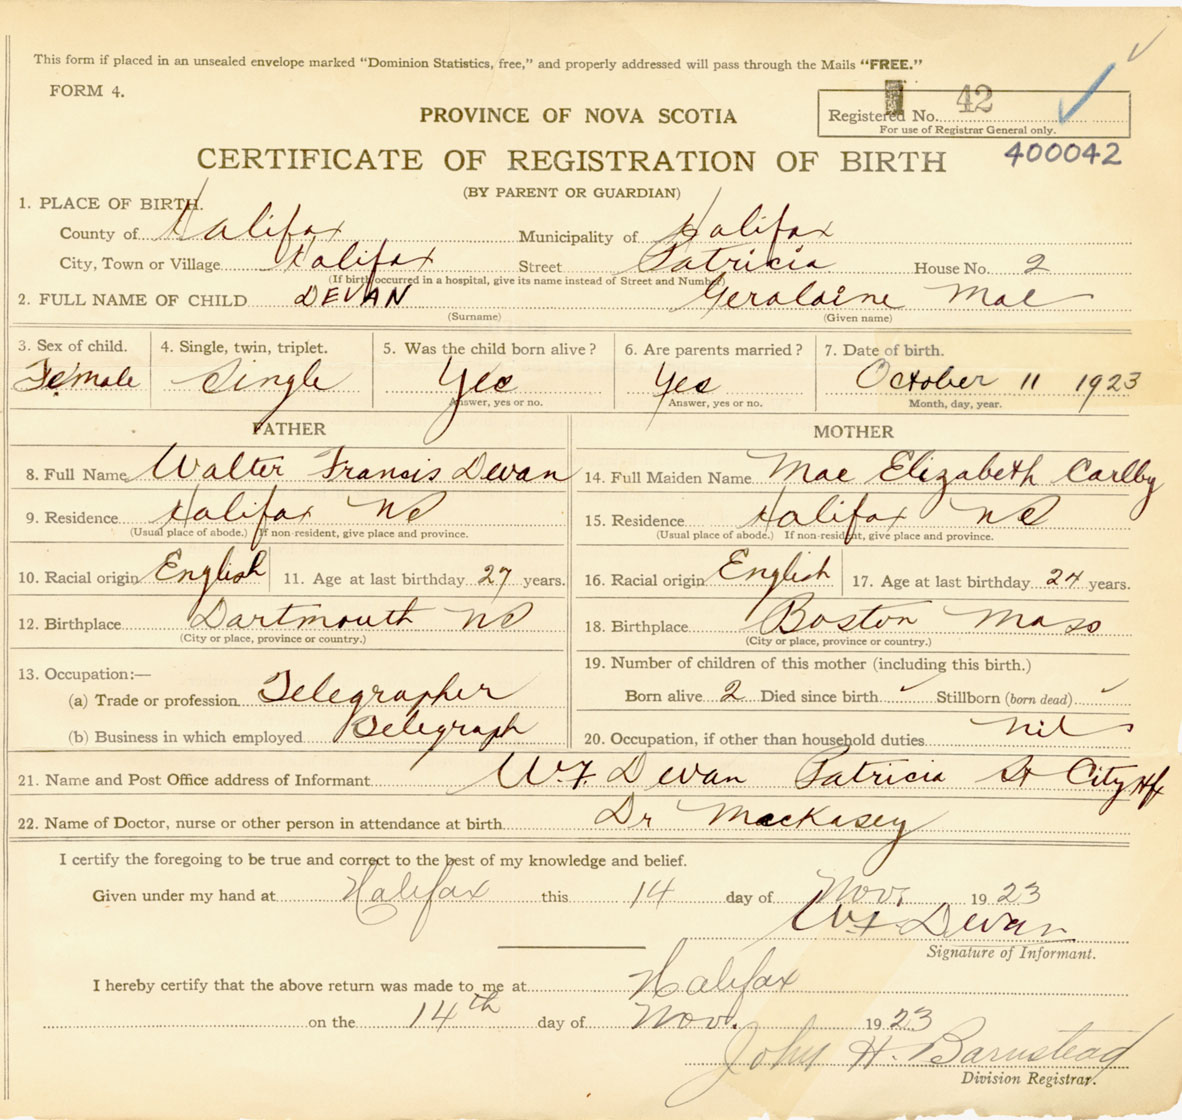 This form if placed in an unsealed envelope marked "Dominion Statistics, free," and properly addressed will pass through the Mails "FREE."
FORM 4.
Registered No. 42
For use of Registrar General only.
PROVINCE OF NOVA SCOTIA
CERTIFICATE OF REGISTRATION OF BIRTH 400042
(BY PARENT OR GUARDIAN)
1. PLACE OF BIRTH.
County of Halifax Municipality of Halifax
City, Town or Village Halifax Street Patricia House No. 2
(If birth occurred in a hospital, give its name instead of Street and Number)
2. FULL NAME OF CHILD DEVAN Geraldine Mae
(Surname) (Given name)
3. Sex of child. 4. Single, twin, triplet. 5. Was the child born alive? 6. Are parents married? 7. Date of birth.
Female Single Yes Yes October 11 1923
Answer, yes or no. Answer, yes or no. Month, day, year.
FATHER MOTHER
8. Full Name Walter Francis Devan 14. Full Maiden Name Mae Elizabeth Carlby
9. Residence Halifax NS 15. Residence Halifax NS
(Usual place of abode.) If non-resident, give place and province. (Usual place of abode.) If non-resident, give place and province.
10. Racial origin English 11. Age at last birthday 27 years. 16. Racial origin English 17. Age at last birthday 24 years.
12. Birthplace Dartmouth NS 18. Birthplace Boston Mass
(City or place, province or country.) (City or place, province or country.)
13. Occupation:— 19. Number of children of this mother (including this birth.)
(a) Trade or profession Telegrapher Born alive 2 Died since birth ✓ Stillborn (born dead) ✓
(b) Business in which employed Telegraph 20. Occupation, if other than household duties Nil
21. Name and Post Office address of Informant W.F. Devan Patricia St City Hfx
22. Name of Doctor, nurse or other person in attendance at birth Dr Mackasey
I certify the foregoing to be true and correct to the best of my knowledge and belief.
Given under my hand at Halifax this 14 day of Nov. 1923
W.F. Devan
Signature of Informant.
I hereby certify that the above return was made to me at Halifax
on the 14th day of Nov. 1923
John H. Barnstead
Division Registrar.